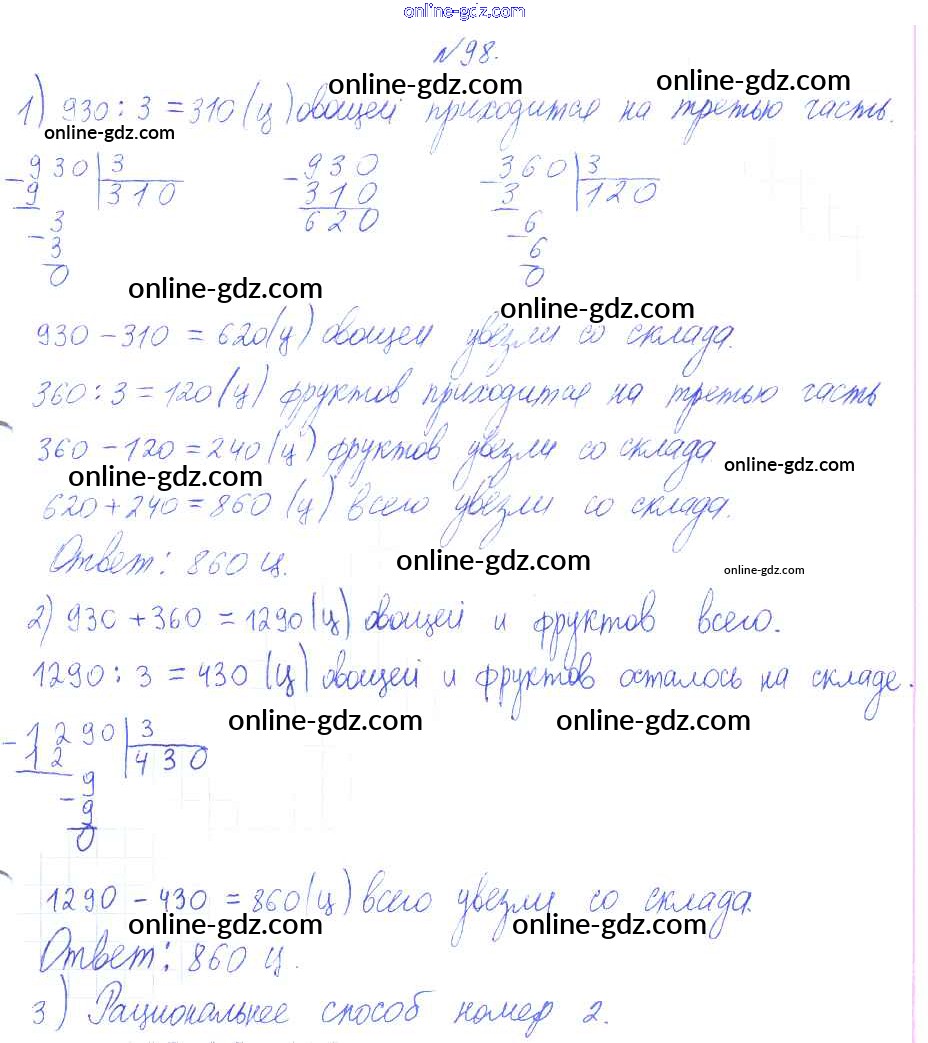 online-gdz.com
№98.
online-gdz.com online-gdz.com
1) 930 : 3 = 310 (ц) овощей приходится на третью часть.
online-gdz.com
930 3 930 360 3
- 9 310 - 310 - 3 120
3 620 6
- 3 - 6
0 0
online-gdz.com online-gdz.com
930 - 310 = 620 (ц) овощей увезли со склада.
360 : 3 = 120 (ц) фруктов приходится на третью часть
360 - 120 = 240 (ц) фруктов увезли со склада
online-gdz.com online-gdz.com
620 + 240 = 860 (ц) всего увезли со склада.
Ответ: 860 ц.
online-gdz.com online-gdz.com
2) 930 + 360 = 1290 (ц) овощей и фруктов всего.
1290 : 3 = 430 (ц) овощей и фруктов осталось на складе.
online-gdz.com online-gdz.com
1290 3
- 12 430
9
- 9
0
1290 - 430 = 860 (ц) всего увезли со склада.
online-gdz.com online-gdz.com
Ответ: 860 ц.
3) Рациональнее способ номер 2.